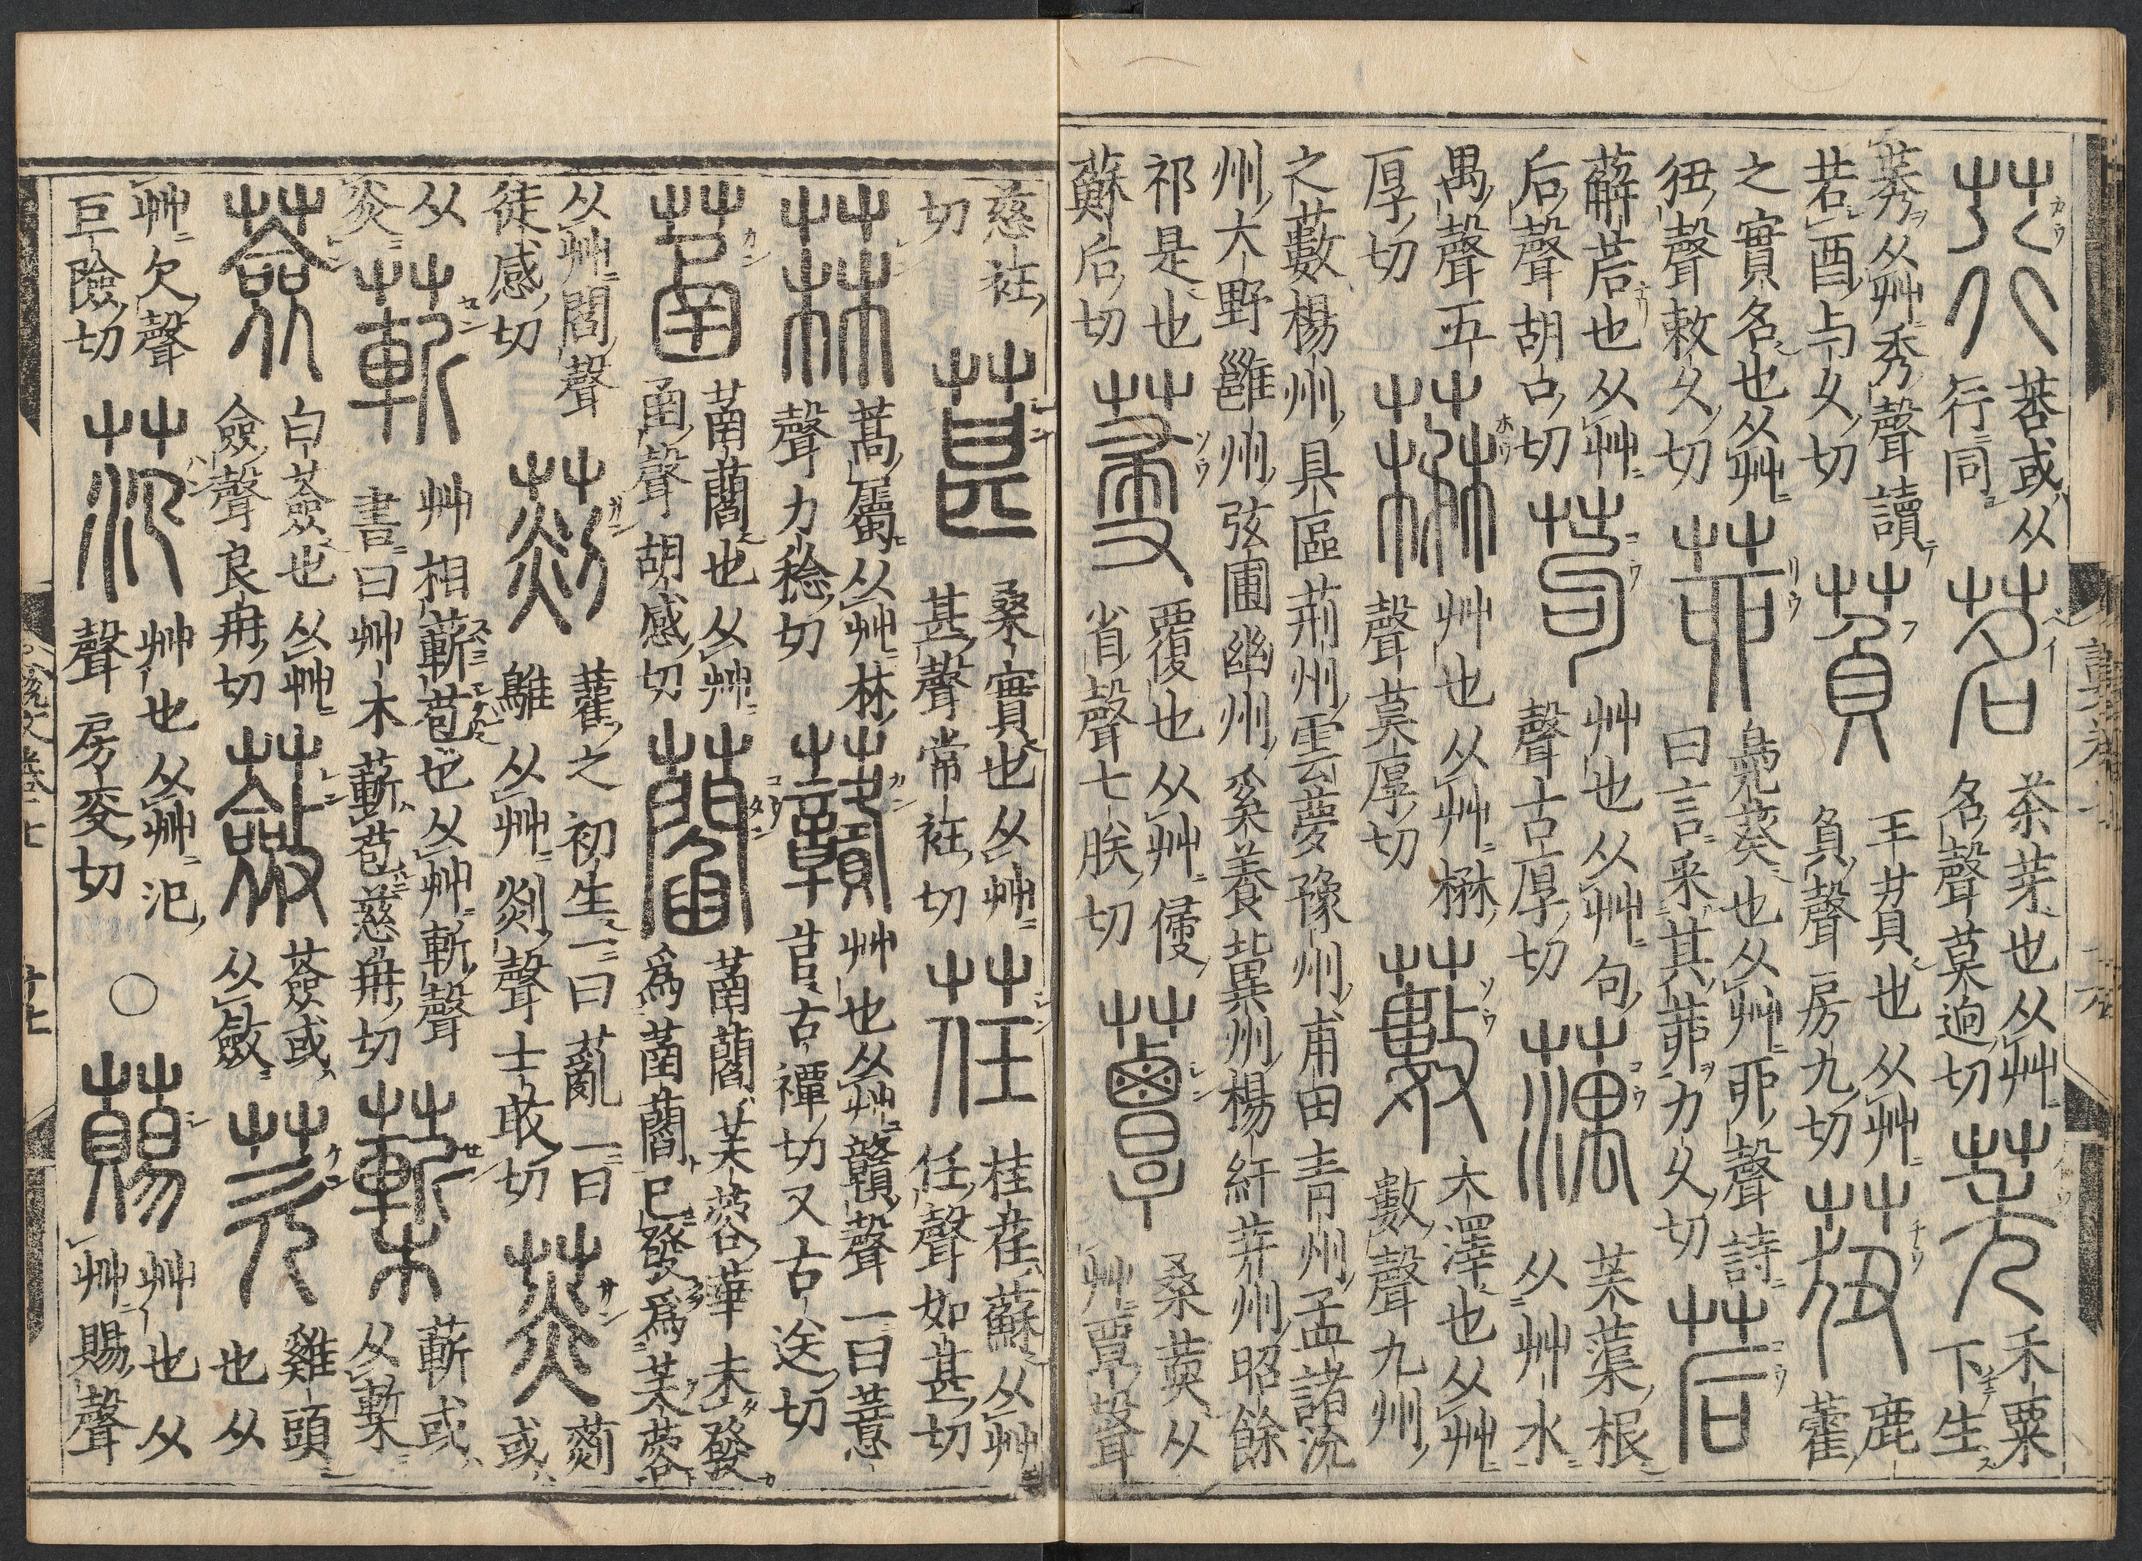 荇
莕或从
行同
茗
荼芽也从艸
名聲莫迥切
莠
禾粟
下生
莠从艸秀聲讀
若酉与久切
萯
王萯也从艸
負聲房九切
莥
鹿
藿
之實名也从艸
狃聲敕久切
茆
鳧葵也从艸丣聲詩
曰言采其茆力久切
茩
薢茩也从艸
后聲胡口切
苟
艸也从艸句
聲古厚切
蕅
芙蕖根
从艸水
禺聲五
厚切
艸也从艸楙
聲莫厚切
藪
大澤也从艸
數聲九州
之藪楊州具區荊州雲夢豫州甫田青州孟諸沇
州大野雝州弦圃幽州奚養冀州楊紆幷州昭餘
祁是也
蘇后切
覆也从艸㑴
省聲七朕切
蕈
桑䓴从
艸覃聲
慈衽
切
葚
桑實也从艸
甚聲常衽切
荏
桂荏蘇从艸
任聲如甚切
菻
蒿屬从艸林
聲力稔切
艸也从艸贛聲一曰薏
苢古禫切又古送切
菡
菡藺也从艸
圅聲胡感切
菡藺芙蓉華未發
爲菡藺已發爲芙蓉
从艸閻聲
徒感切
雚之初生一曰薍一曰
鵻从艸剡聲士敢切
菼
或
从
炎
蔪
艸相蔪苞也从艸斬聲
書曰艸木蔪苞慈冉切
蔪或
从槧
薟
白薟也从艸
僉聲良冉切
蘞
薟或
从斂
芡
雞頭
也从
艸欠聲
巨險切
范
艸也从艸氾
聲房㚇切
○
艸也从
艸賜聲
説文卷
廿七